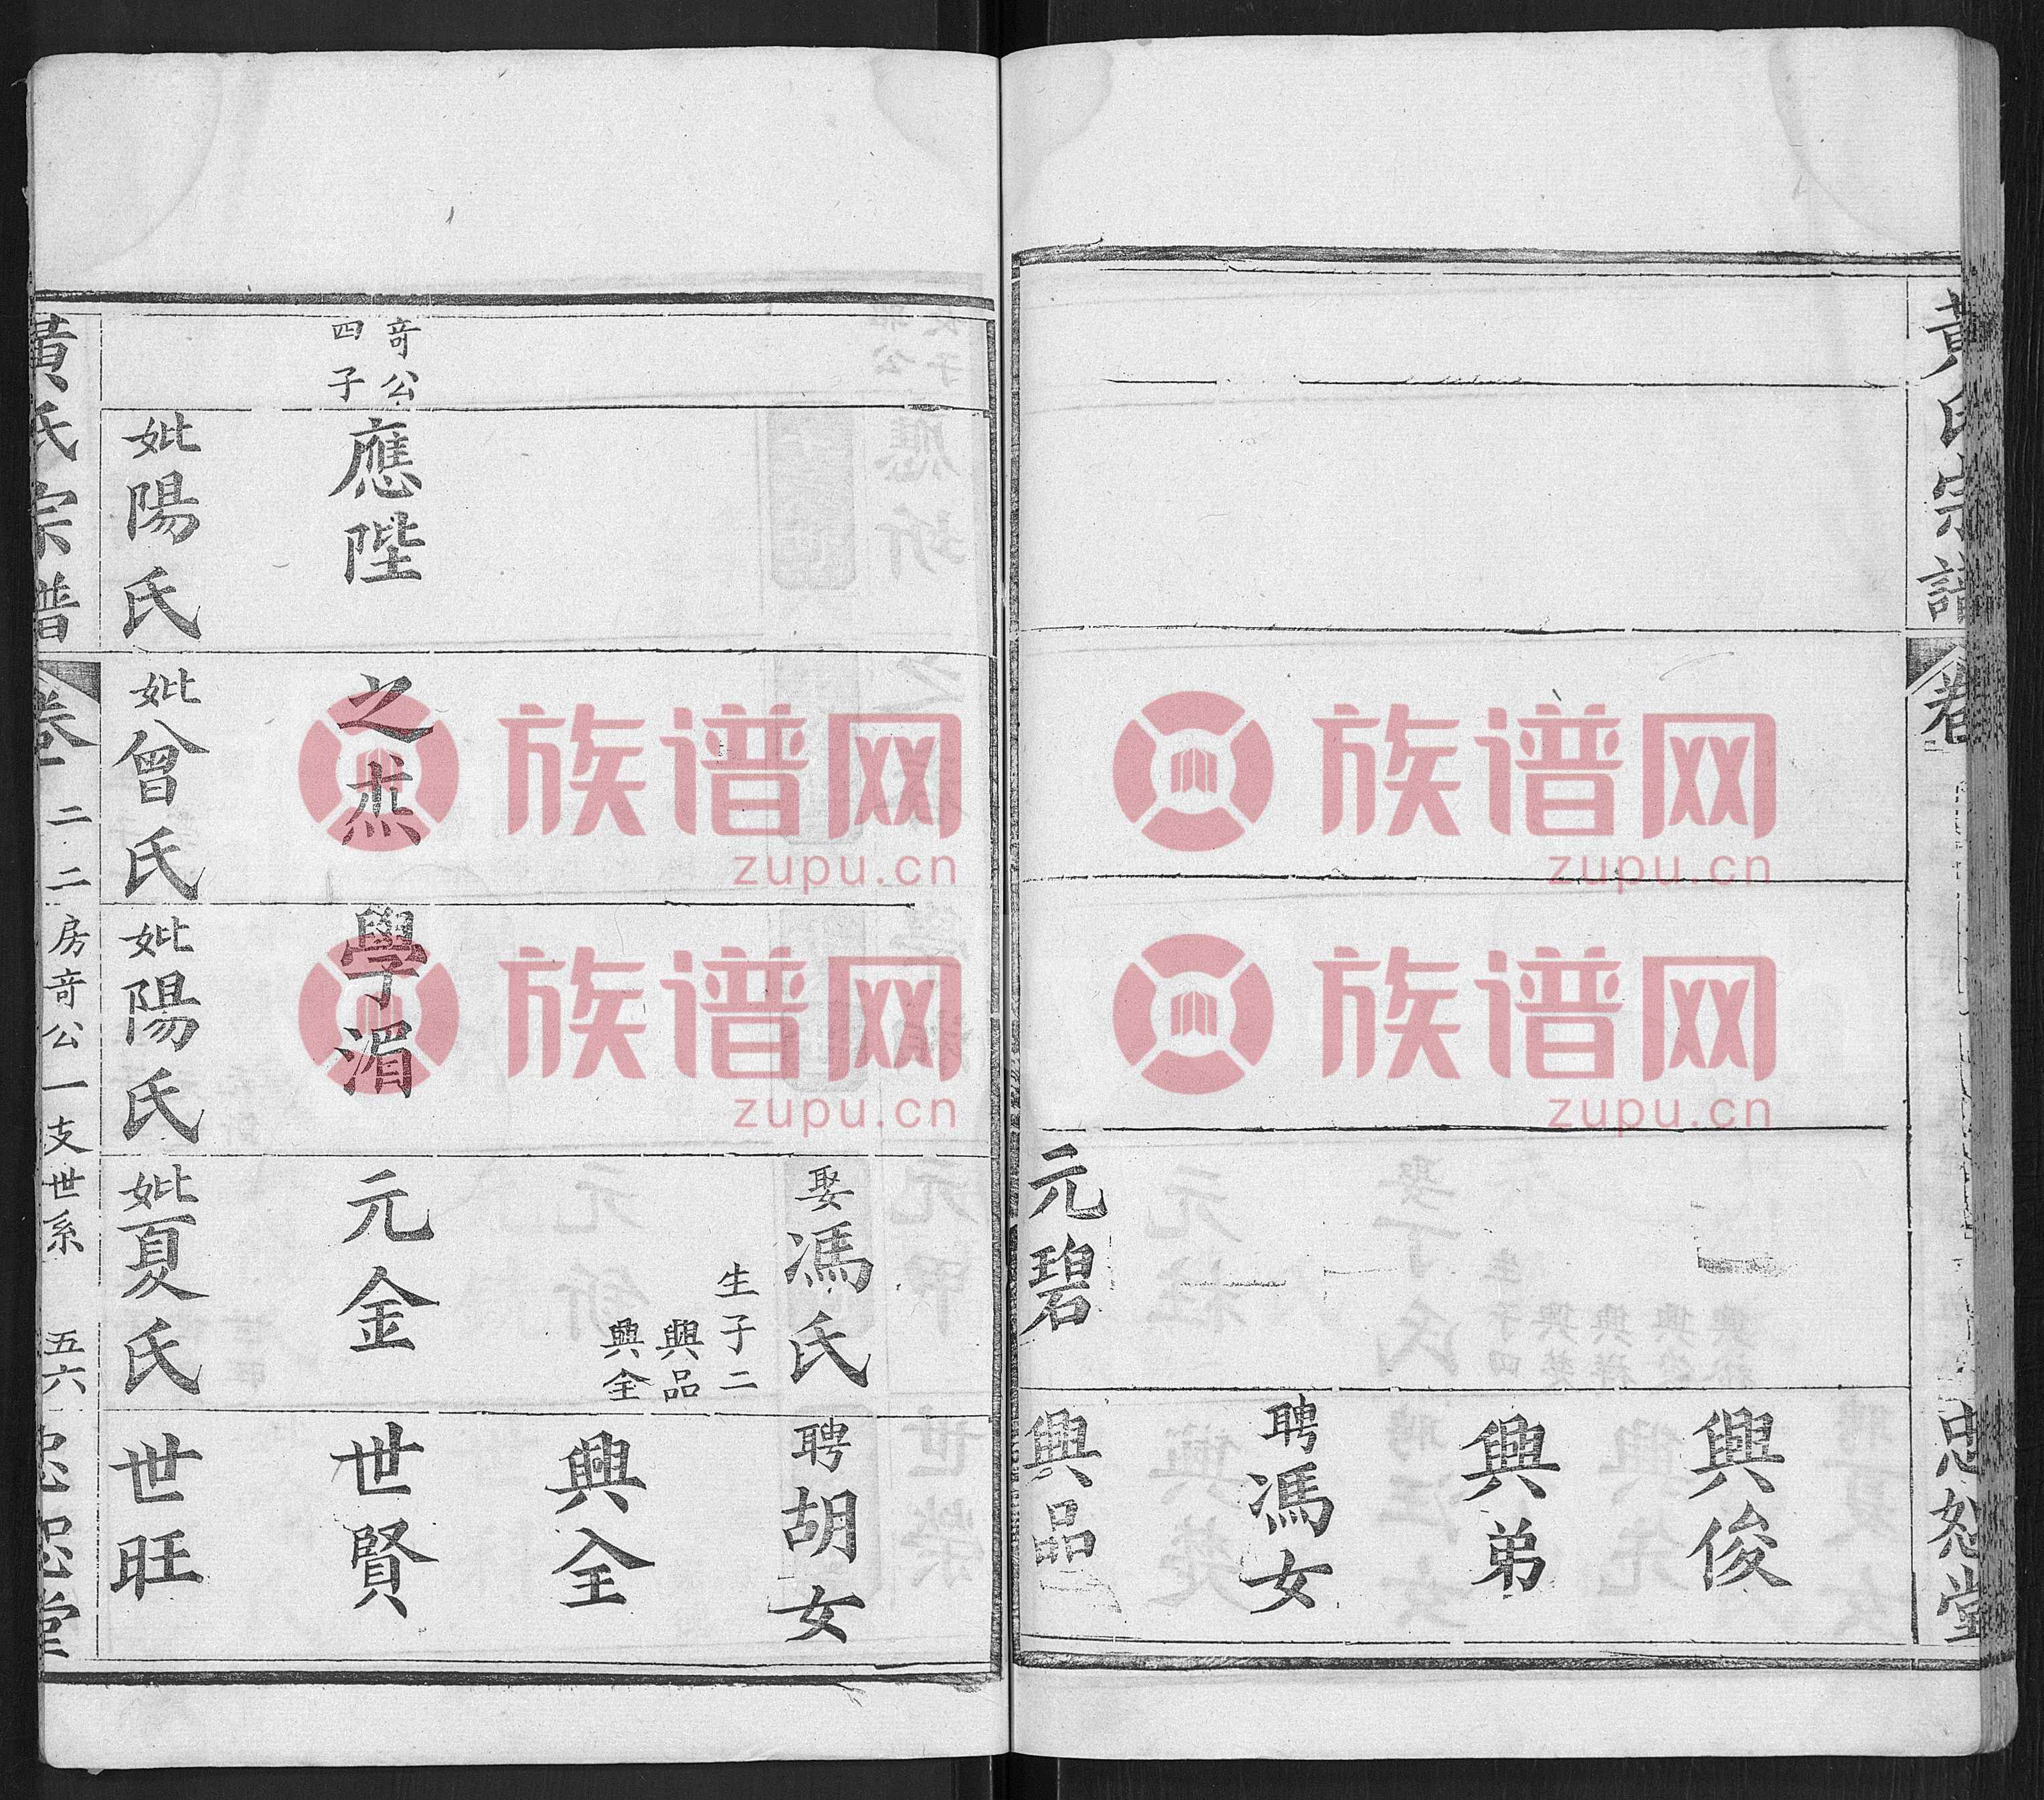 黃氏宗譜
卷
忠恕堂
興俊
興弟
聘馮女
元碧
興品
娶馮氏
生子二
興品
興全
聘胡女
興全
奇公
四子
應陛
之焘
學湄
元金
世賢
妣陽氏
妣曾氏
妣陽氏
妣夏氏
世旺
黃氏宗譜
卷二 二房奇公一支世系 五六
忠恕堂
族谱网
zupu.cn
族谱网
zupu.cn
族谱网
zupu.cn
族谱网
zupu.cn